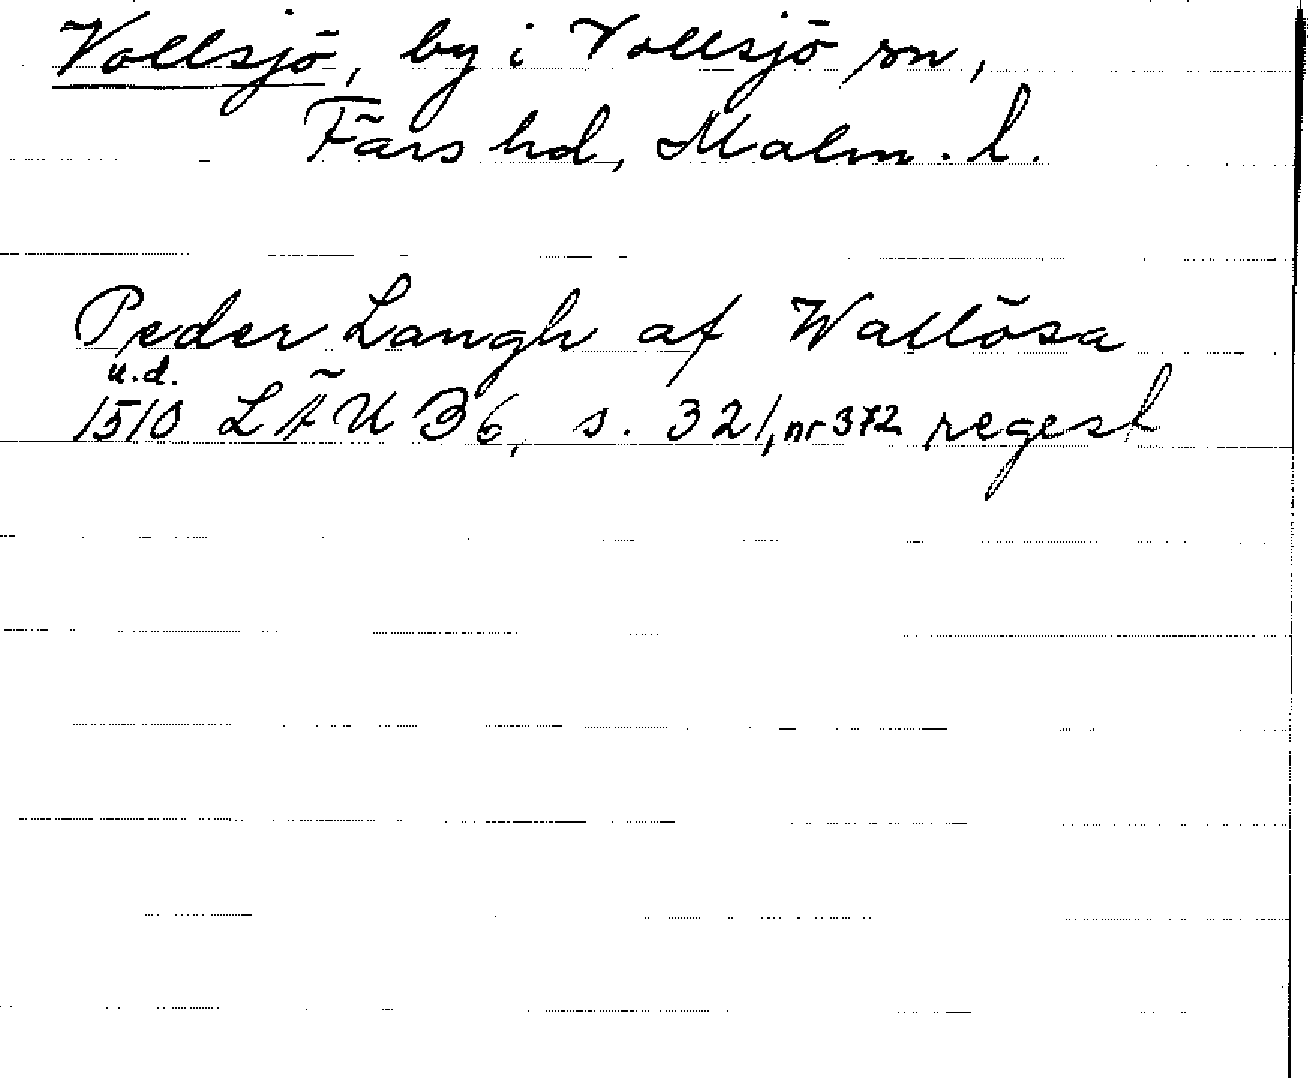 Vollsjö, by i Vollsjö sn,
Färs hd, Malm. l.
Peder Langh af Wallösa
u.d.
1510 LÄU B6, s. 321, nr 372 regest